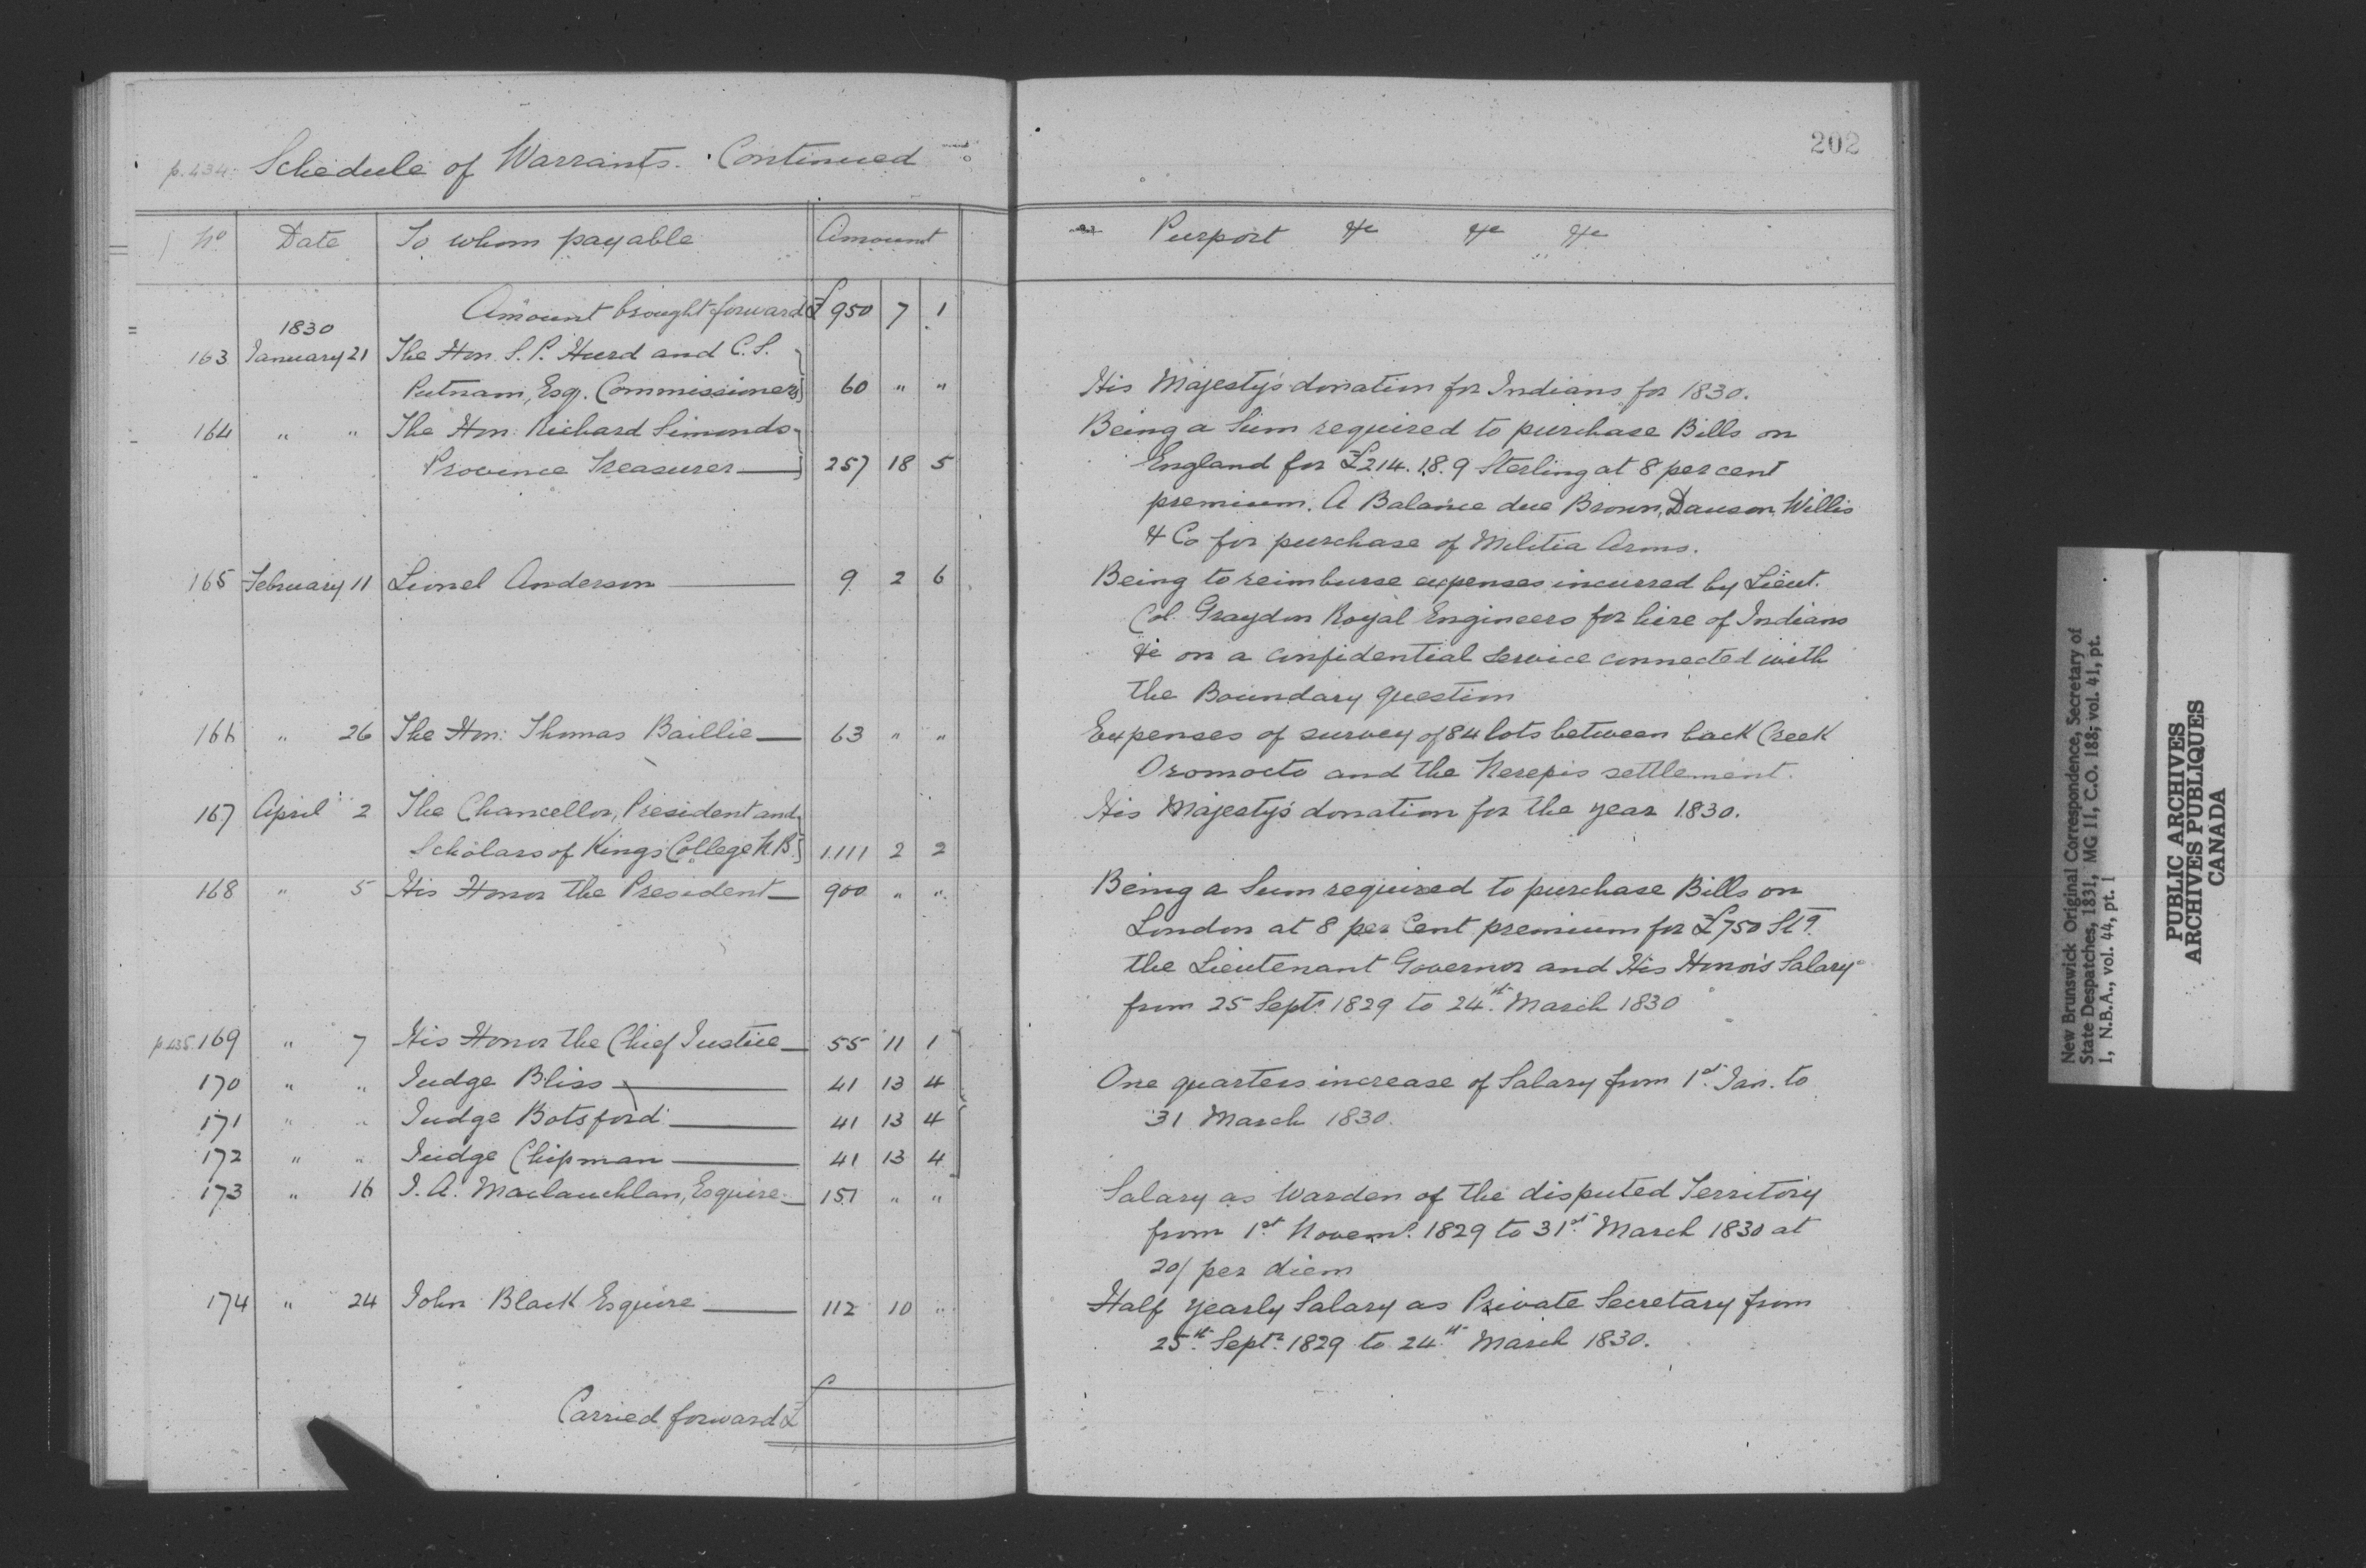 202
p.434 Schedule of Warrants. Continued
No Date To whom payable Amount Purport &c &c &c
Amount brought forward £ 950 7 1
1830
163 January 21 The Hon. S. P. Hurd and C. S.
Putnam, Esq. Commissioners 60 " " His Majesty's donation for Indians for 1830.
164 " " The Hon: Richard Simonds Being a Sum required to purchase Bills on
Province Treasurer 257 18 5 England for £214.18.9 Sterling at 8 per cent
premium. A Balance due Brown, Dawson, Willis
& Co for purchase of Militia Arms.
165 February 11 Lionel Anderson 9 2 6 Being to reimburse expenses incurred by Lieut.
Col. Graydon Royal Engineers for hire of Indians
&c on a confidential service connected with
the Boundary question
166 " 26 The Hon: Thomas Baillie 63 " " Expenses of survey of 84 lots between back Creek
Oromocto and the Nerepis settlement.
167 April 2 The Chancellor, President and His Majesty's donation for the year 1830.
Scholars of Kings College N.B. 1111 2 2
168 " 5 His Honor the President 900 " " Being a Sum required to purchase Bills on
London at 8 per Cent premium for £750 Stg.
the Lieutenant Governor and His Honor's Salary
from 25 Septr. 1829 to 24th. March 1830
p.435 169 " 7 His Honor the Chief Justice 55 11 1
170 " " Judge Bliss 41 13 4 One quarters increase of Salary from 1st. Jan. to
171 " " Judge Botsford 41 13 4 31 March 1830.
172 " " Judge Chipman 41 13 4
173 " 16 J. A. Maclauchlan, Esquire 151 " " Salary as Warden of the disputed Territory
from 1st Novemr. 1829 to 31st. March 1830 at
20/ per diem
174 " 24 John Black Esquire 112 10 " Half yearly Salary as Private Secretary from
25th. Septr. 1829 to 24th March 1830.
Carried forward £
New Brunswick Original Correspondence, Secretary of
State Despatches, 1831, MG 11, C.O. 188; vol. 41, pt.
1, N.B.A., vol. 44, pt. 1
PUBLIC ARCHIVES
ARCHIVES PUBLIQUES
CANADA